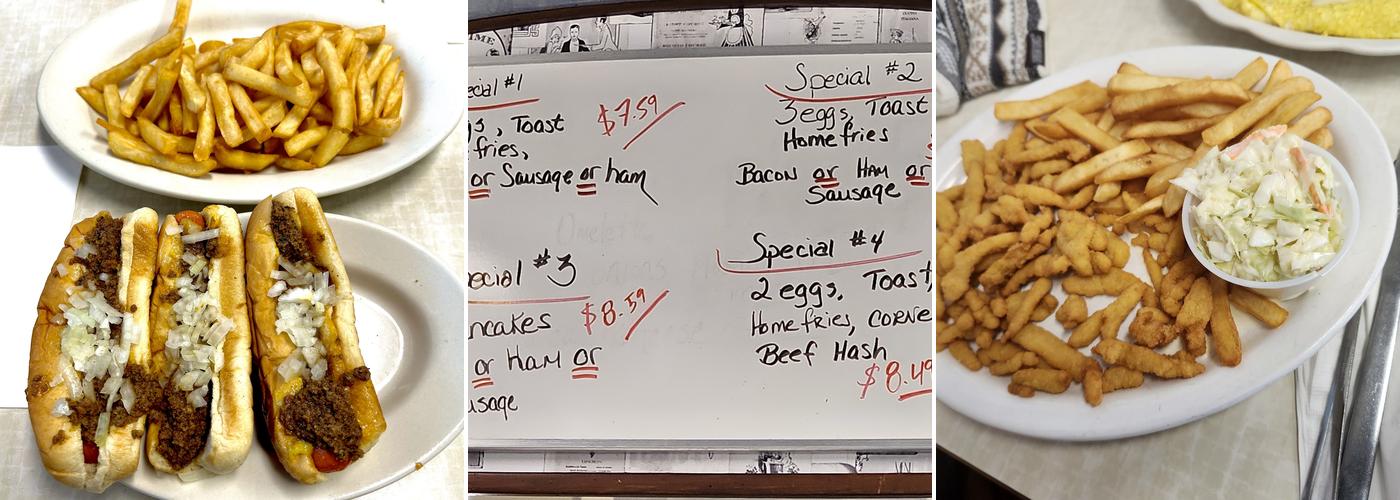 ecial #1
$7.59
gs, Toast
fries,
or Sausage or ham
Special #2
3eggs, Toast
Homefries
Bacon or Ham or
Sausage
ecial #3
$8.59
ncakes
or Ham or
usage
Special #4
2 eggs, Toast,
Homefries, CORNE
Beef Hash
$8.49